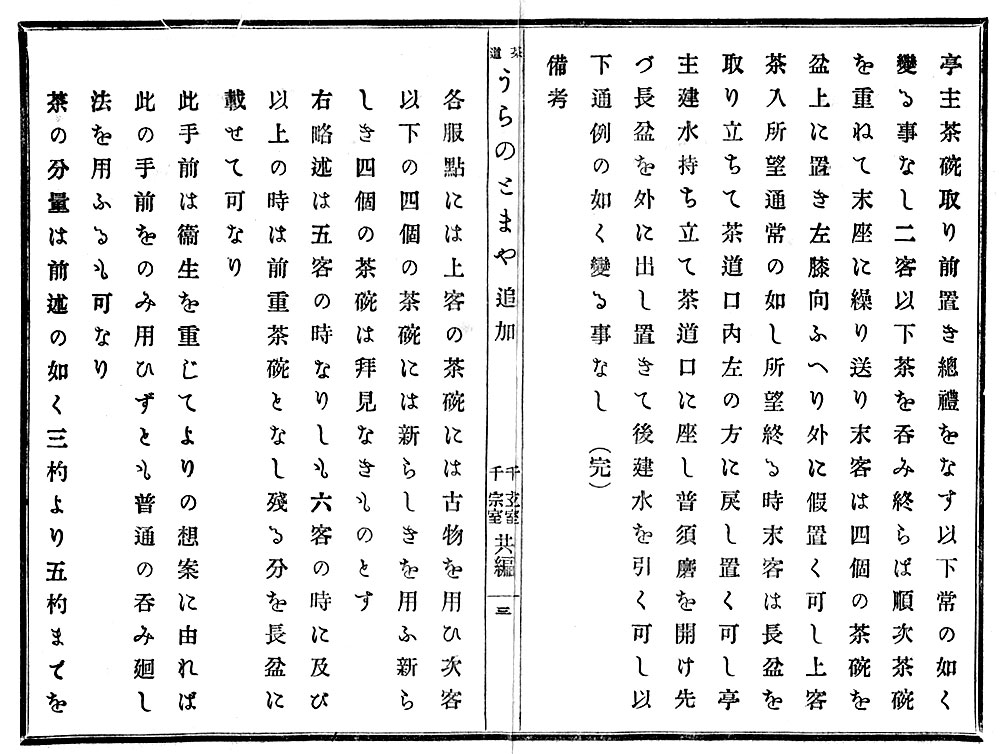 亭主茶碗取り前置き總禮をなす以下常の如く
變る事なし二客以下茶を呑み終らば順次茶碗
を重ねて末座に繰り送り末客は四個の茶碗を
盆上に置き左膝向ふへり外に假置く可し上客
茶入所望通常の如し所望終る時末客は長盆を
取り立ちて茶道口內左の方に戻し置く可し亭
主建水持ち立て茶道口に座し普須磨を開け先
づ長盆を外に出し置きて後建水を引く可し以
下通例の如く變る事なし (完)
備考
茶道 うらのとまや 追加 千玄室 千宗室 共編 三
各服點には上客の茶碗には古物を用ひ次客
以下の四個の茶碗には新らしきを用ふ新ら
しき四個の茶碗は拜見なきものとす
右略述は五客の時なりしも六客の時に及び
以上の時は前重茶碗となし殘る分を長盆に
載せて可なり
此手前は衞生を重じてよりの想案に由れば
此の手前をのみ用ひずとも普通の呑み廻し
法を用ふるも可なり
茶の分量は前述の如く三杓より五杓までを